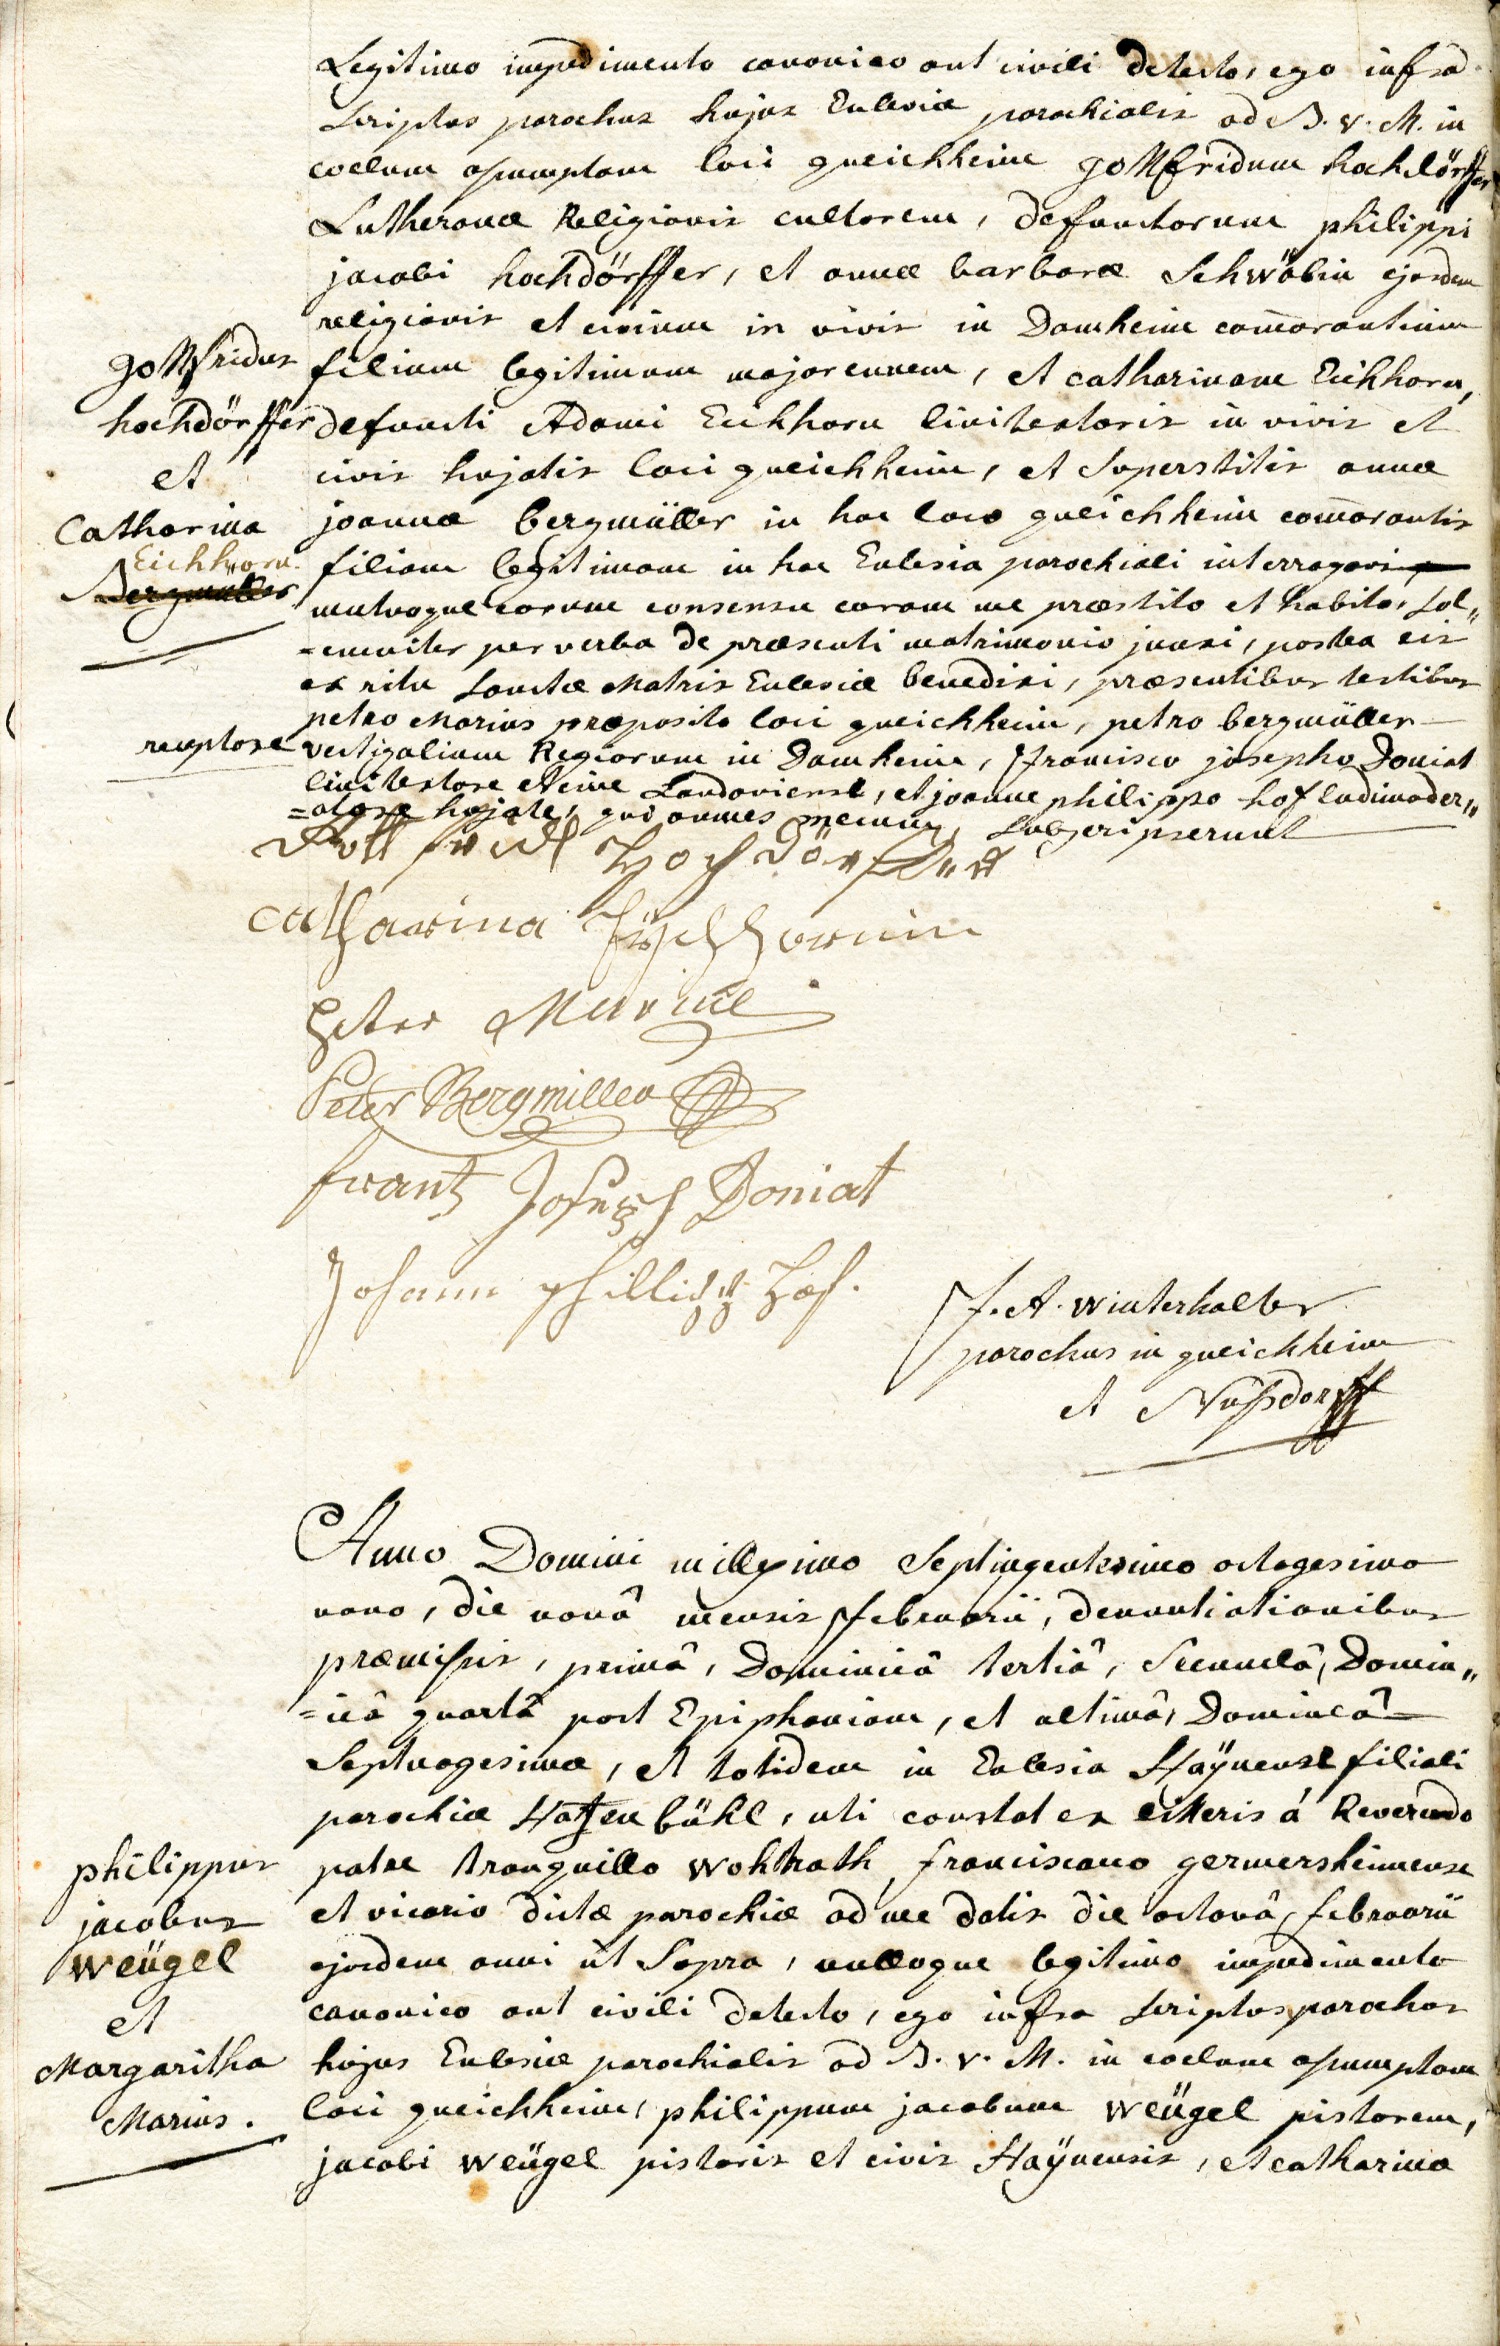 Legitimo impedimento canonico aut civili detecto, ego infra
scriptus parochus hujus Eclesiæ parochialis ad B. V. M. in
coelum assumptam loci queichheim gottfridum hochdörffer
Lutheranæ Religionis cultorem, defunctorum philippi
jacobi hochdörffer, et annæ barbaræ Schwäbin ejusdem
religionis et civium in vivis in Damheim com̄orantium
gottfridus
hochdörffer
et
Catharina
Eichhorn.
Bergmüller
filium legitimum majorennem, et catharinam Eichhorn,
defuncti Adami Eichhorn linitextoris in vivis et
civis hujatis loci queichheim, et superstitis annæ
joannæ bergmüller in hoc loco queichheim com̄orantis
filiam legitimam in hac Eclesia parochiali interrogavi
mutuoque eorum consensu coram me præstito et habito, sol„
=emniter per verba de præsenti matrimonio junxi, postea eis
ex ritu Sanctæ Matris Eclesiæ benedixi, præsentibus testibus
petro Marius præposito loci queichheim, petro bergmüller
receptore
vectigalium Regiorum in Damheim, francisco josepho Doniat
linitextore et cive Landaviense, et joanne philippo hof ludimoder„
=atore hujate, qui omnes mecum, subscripserunt
Gottfridt Hochdörffer
catharina Eychhornin
Peter Marius
Peter Bergmiller
frantz Joseph Doniat
Johann phillipp Hof.
F. A. Winterhalter
parochus in queichheim
et Nußdorff
Anno Domini millesimo Septingentesimo octogesimo
nono, die nonâ mensis februarii, denuntiationibus
præmissis, primâ, Dominicâ tertiâ, Secundâ, Domin„
=icâ quartâ post Epiphaniam, et ultimâ, Dominicâ
Septuagesimæ, et totidem in Eclesia Haÿnense filiali
parochiæ Hatzenbühl, uti constat ex litteris á Reverendo
philippus
jacobus
weügel
et
Margaritha
Marius.
patre tranquillo wohlrath, franciscano germersheimense
et vicario dictæ parochiæ ad me datis die octavâ, februarii
ejusdem anni ut Supra, nulloque legitimo impedimento
canonico aut civili detecto, ego infra scriptus parochus
hujus Eclesiæ parochialis ad B. V. M. in coelum assumptam
loci queichheim, philippum jacobum weügel pistorem,
jacobi weügel pistoris et civis Haÿnensis, et catharina